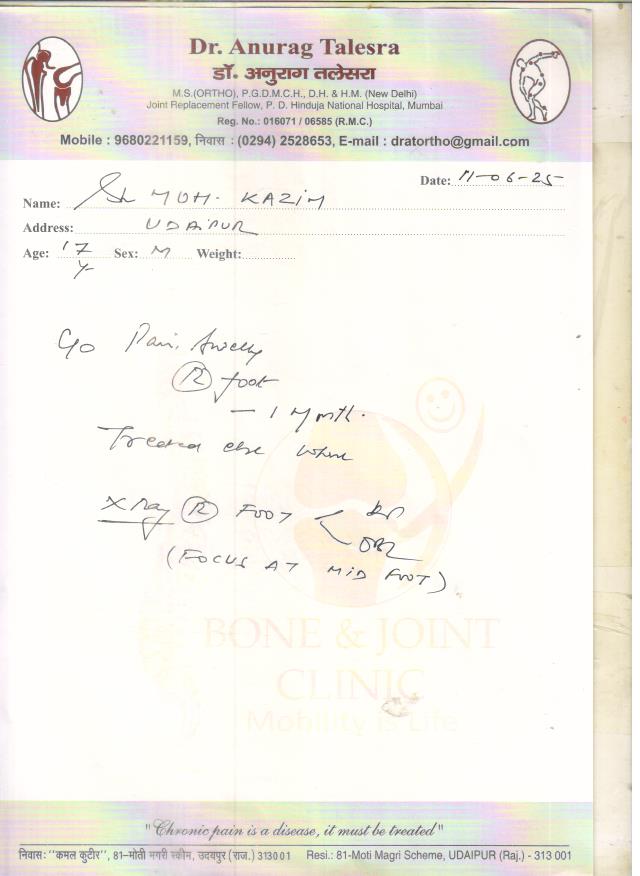 Dr. Anurag Talesra
डॉ. अनुराग तलेसरा
M.S.(ORTHO), P.G.D.M.C.H., D.H. & H.M. (New Delhi)
Joint Replacement Fellow, P. D. Hinduja National Hospital, Mumbai
Reg. No.: 016071 / 06585 (R.M.C.)
Mobile : 9680221159, निवास : (0294) 2528653, E-mail : dratortho@gmail.com
Date: 11-06-25
Name: Sh MOH. KAZIM
Address: UDAIPUR
Age: 17 Y Sex: M Weight:
C/o Pain, Swelling
R foot
- 1 Month.
Treated else where
X Ray R FOOT AP
OBL
(FOCUS AT MID FOOT)
BONE & JOINT
CLINIC
Mobility is Life
"Chronic pain is a disease, it must be treated"
निवास: "कमल कुटीर", 81-मोती मगरी स्कीम, उदयपुर (राज.) 313001 Resi.: 81-Moti Magri Scheme, UDAIPUR (Raj.) - 313 001